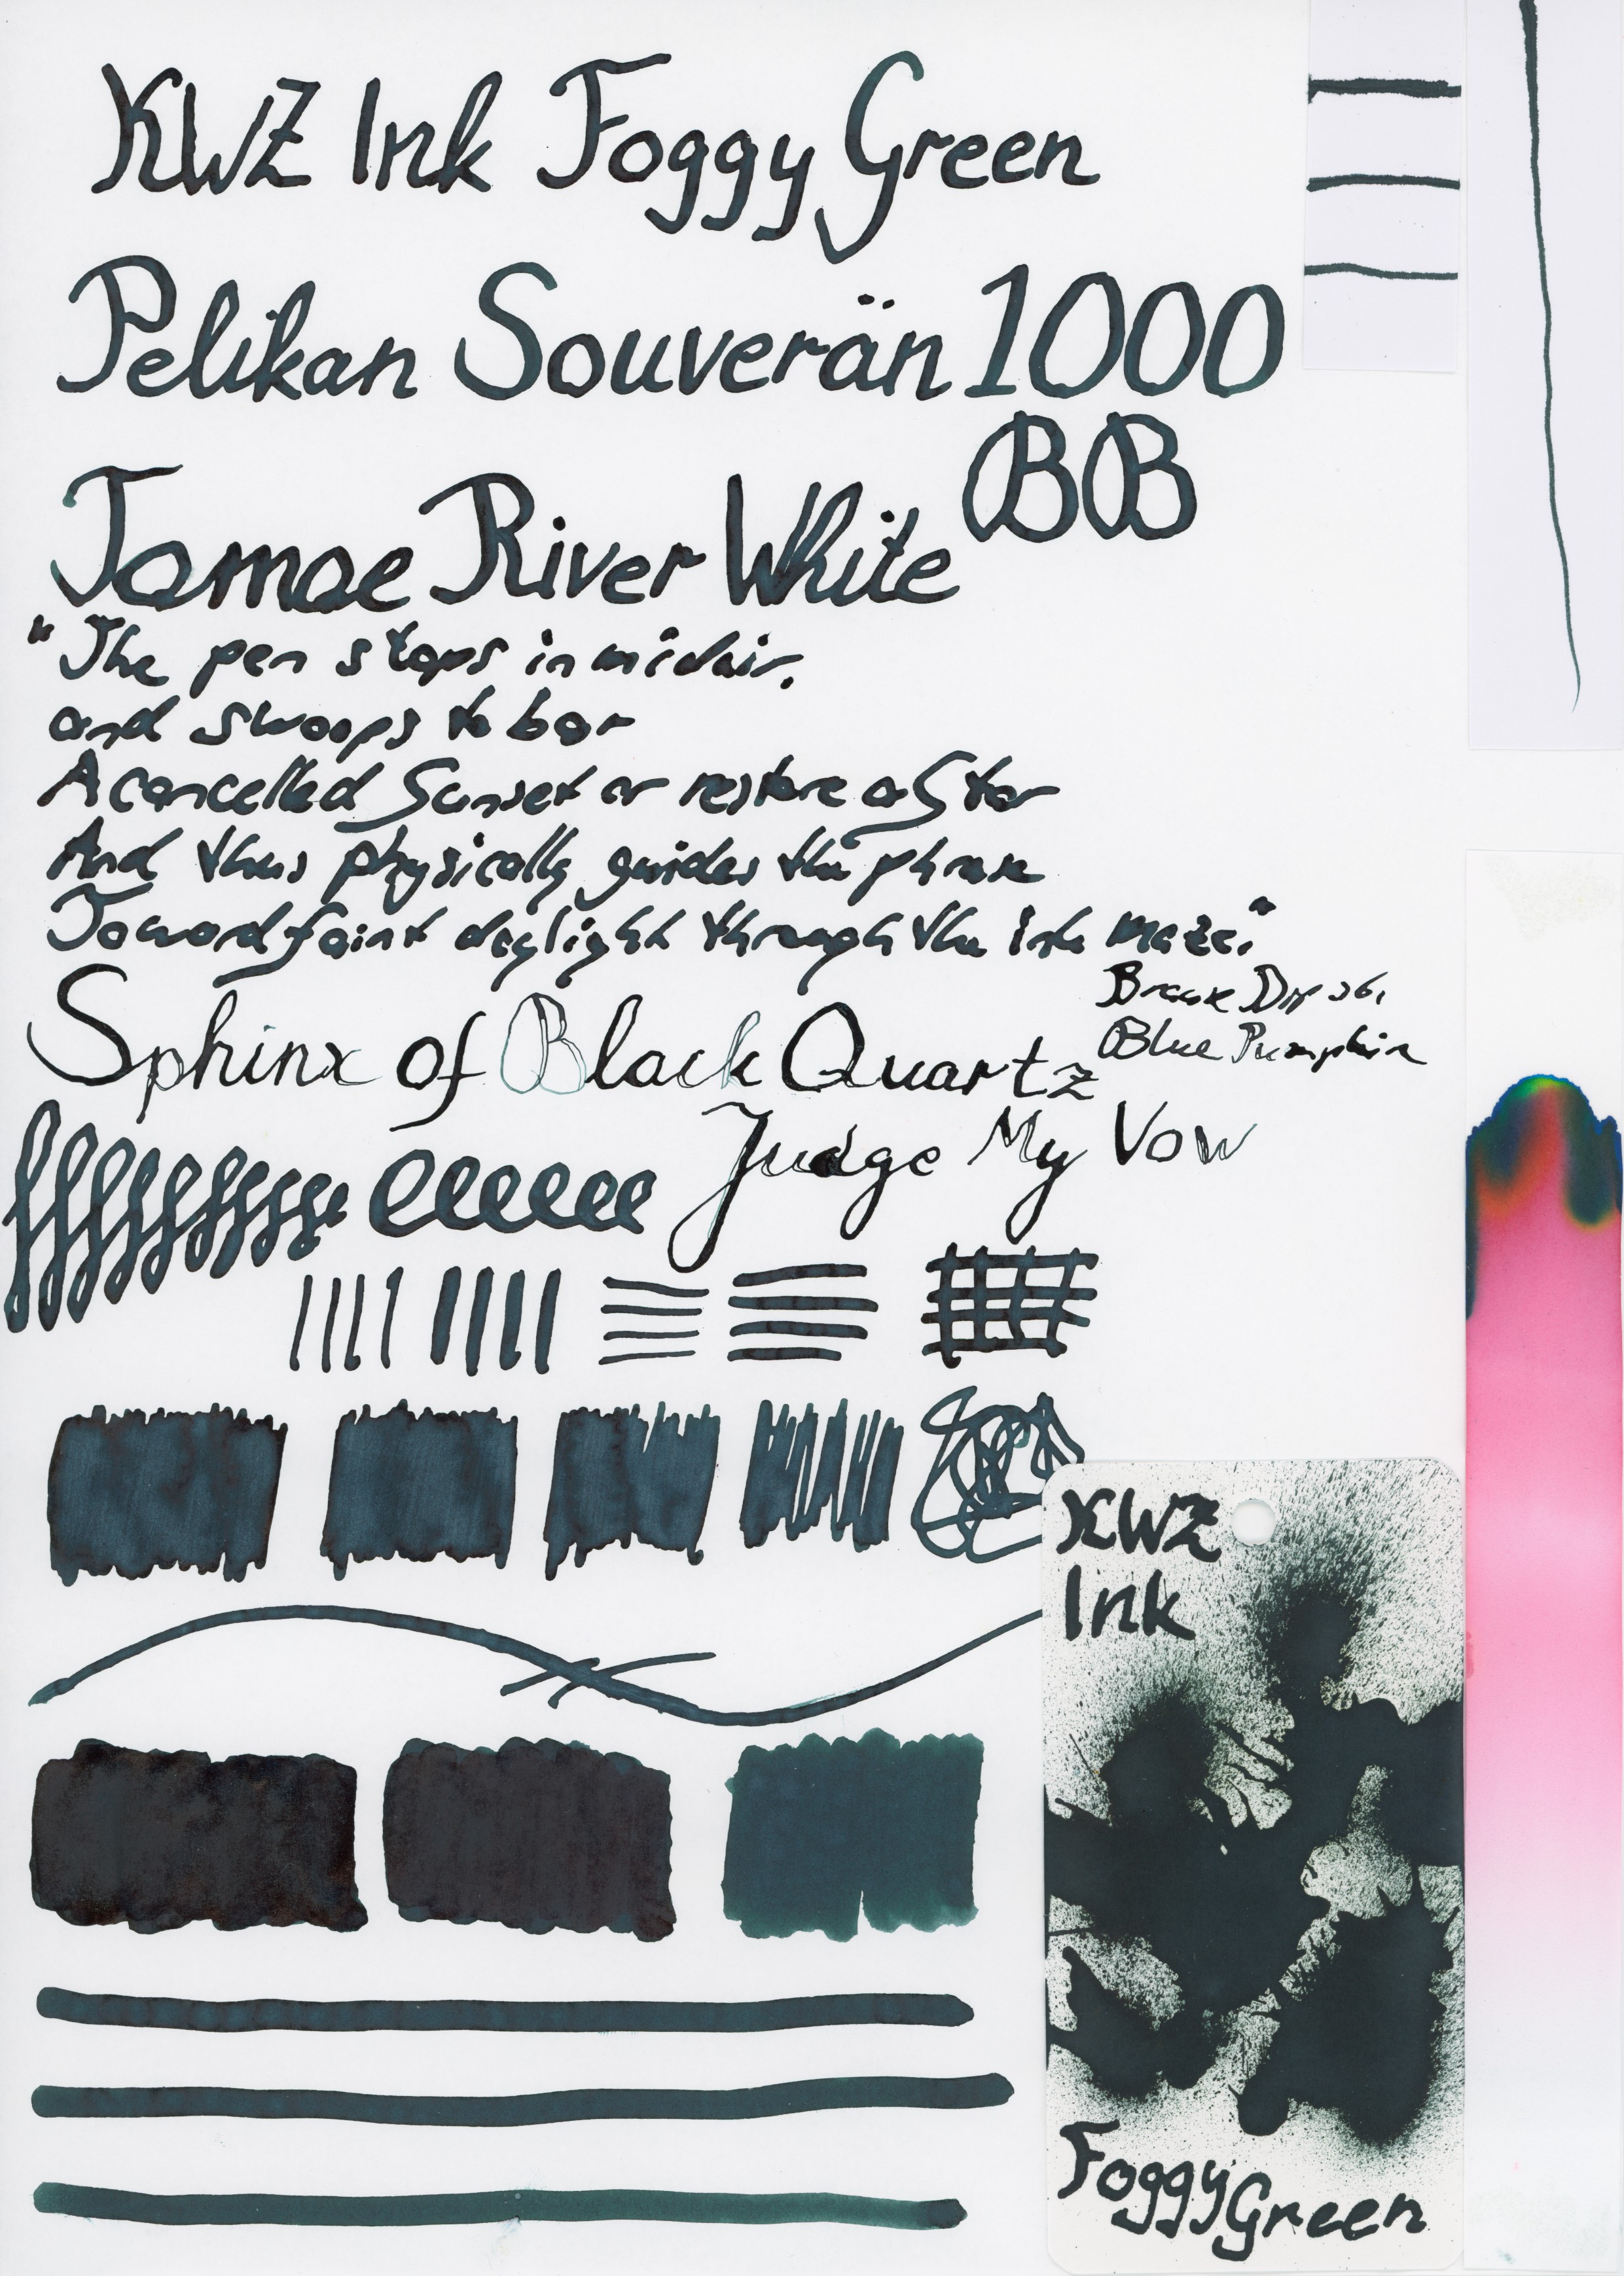 KWZ Ink Foggy Green
Pelikan Souverän 1000
BB
Tomoe River White
"The pen stops in midair,
and swoops to bar
A cancelled Sunset or restore a Star
And thus physically guides the phrase
Toward faint daylight through the ink maze."
Sphinx of Black Quartz
Judge My Vow
Brause Dip 361
Blue Pumpkin
KWZ
Ink
Foggy
Green